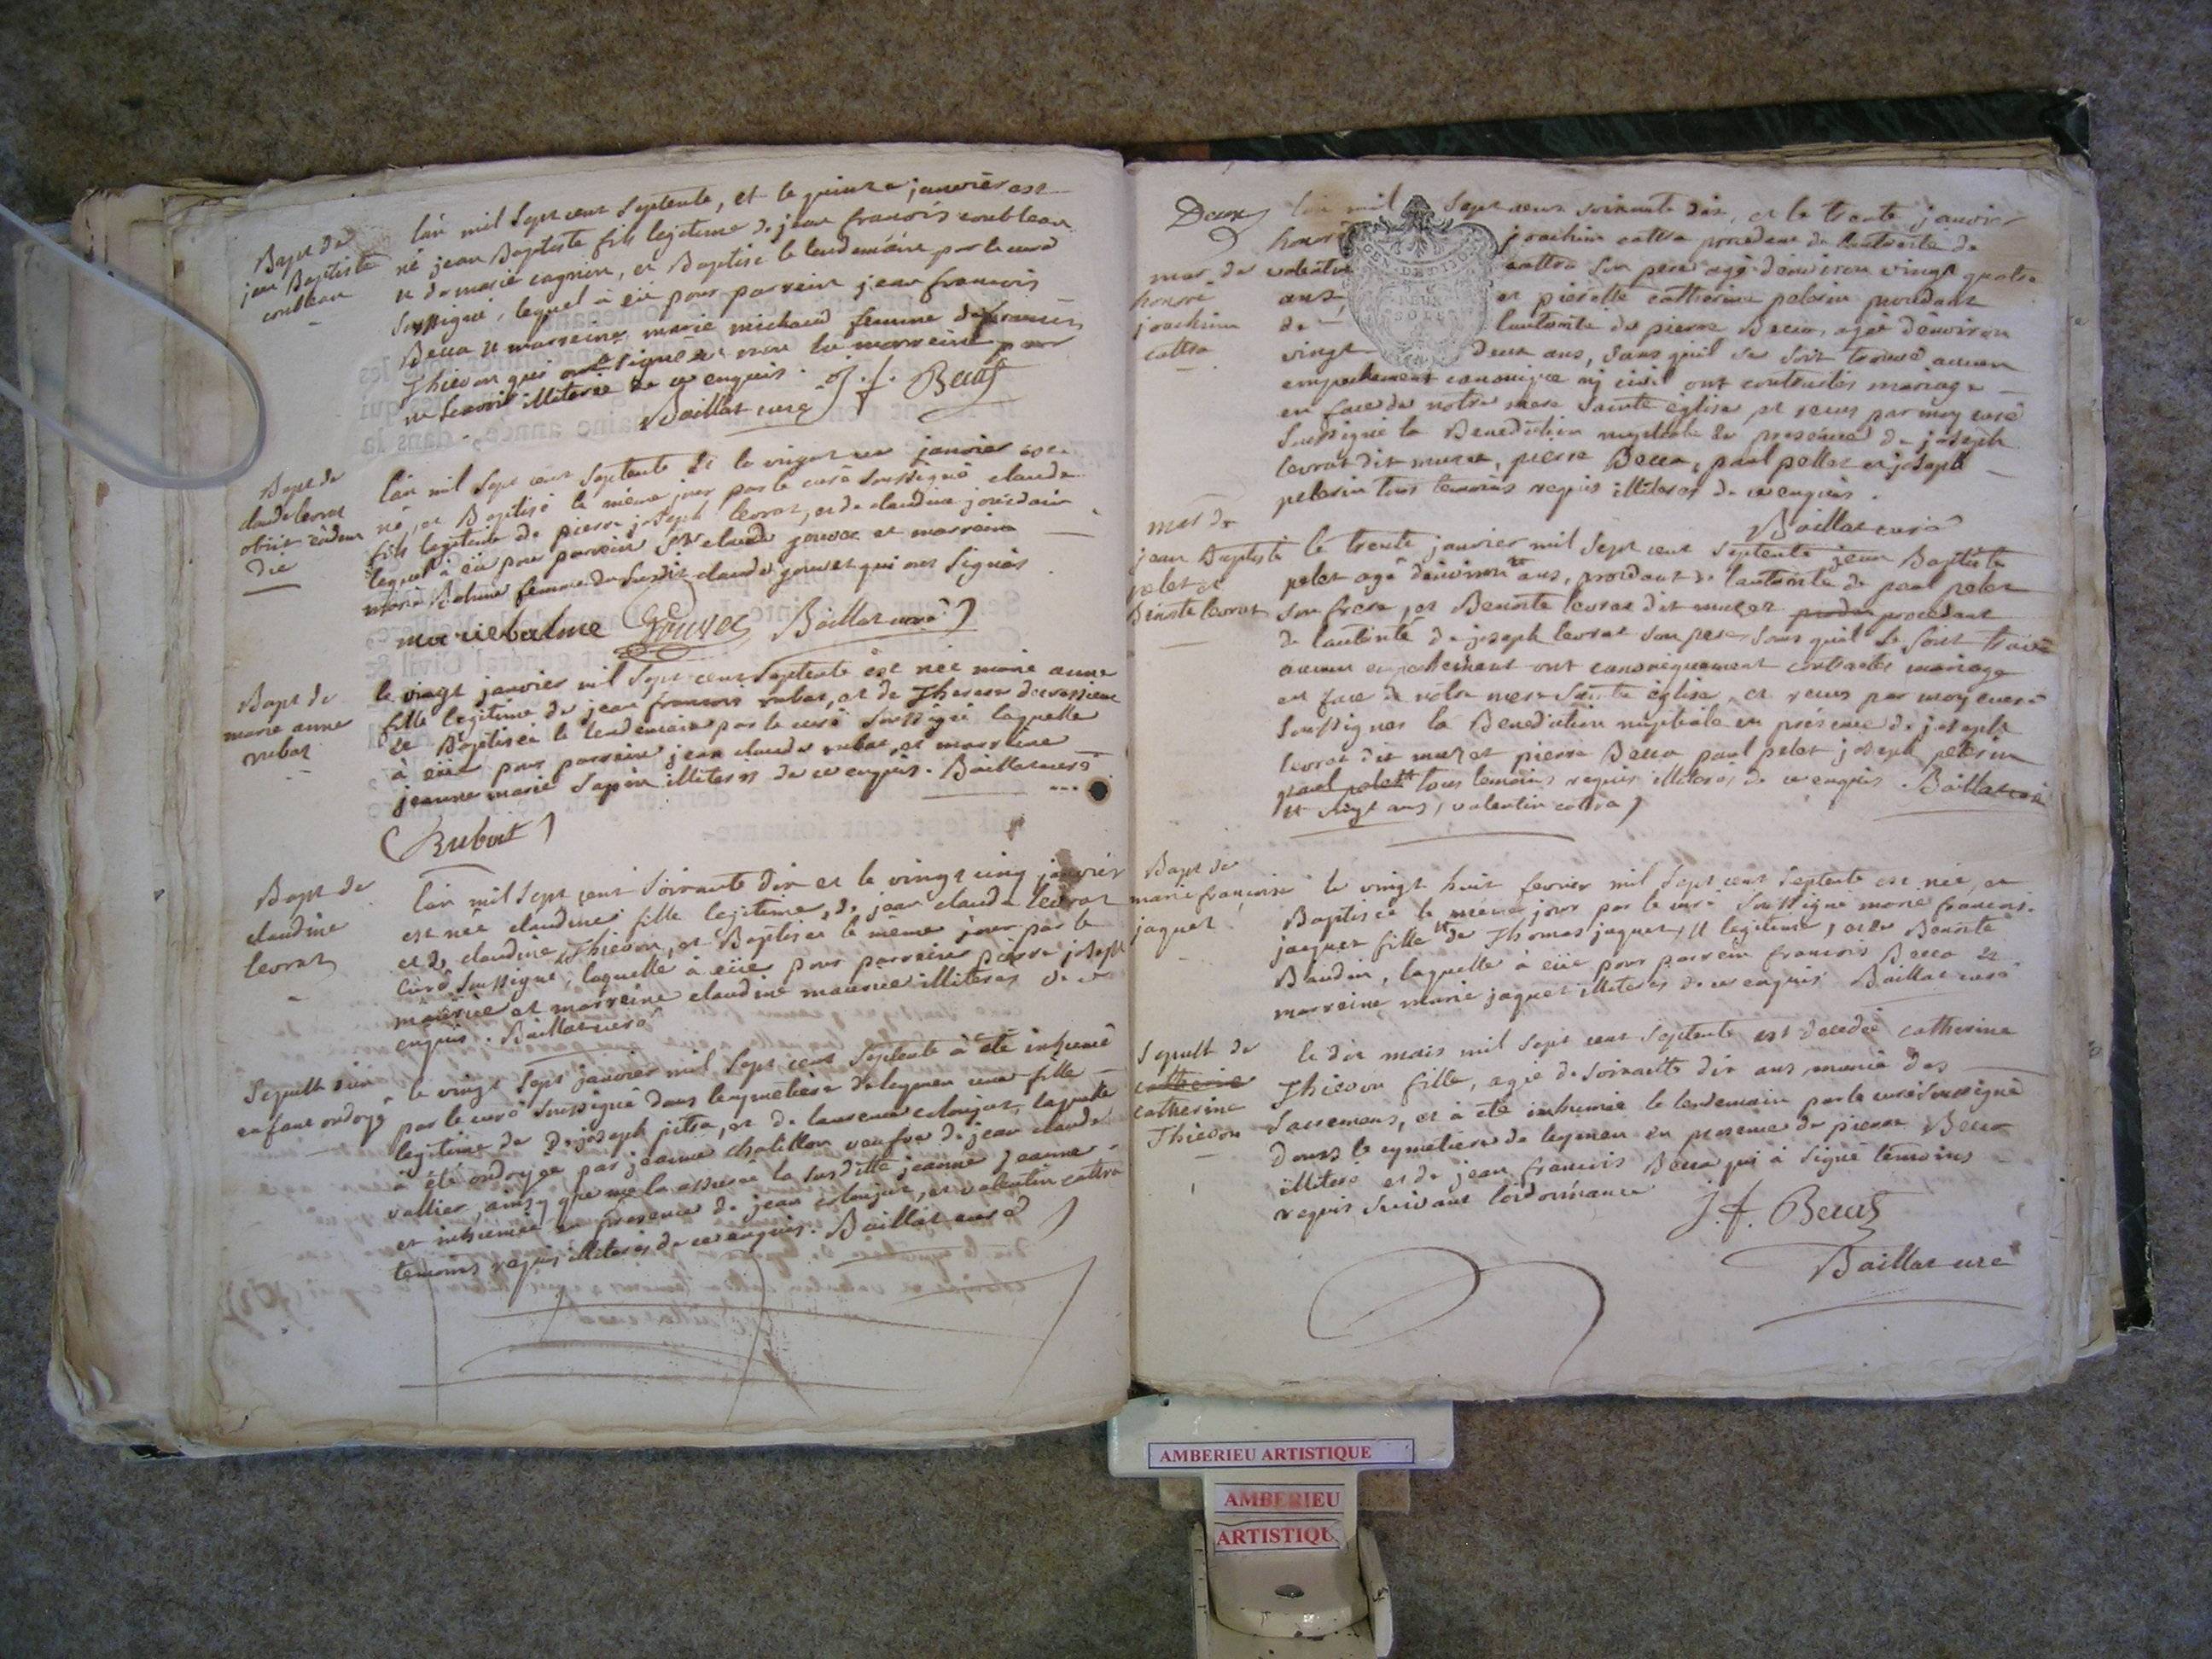 Bapt de
jean Baptiste
coubleau
lân mil Sept cent Septente, et le quinze janvièr est
né jean Baptiste fils legitime de jean francois coubleau
et de marie cagnin, et Baptisé le lendemain par le curé
Soussigné, lequel à eû pour parrein jean francois
Becca et marreine marie michaud femme de francois
Thievon qui ont signés non la marreine pour
ne scavoir illiterée de ce enquis. J. f. Beccas
Baillat curé
Bapt de
claude levrat
obiit eadem
die
lân mil Sept cent Septente et le vingt un janvier est
né, et Baptisé le même jour par le curé Soussigné claude
fils legitime de pierre joseph levrat, et de claudine jourdain
lequel à eû pour parrein Sr claude jouvet et marreine
marie Balme femme du Susdit claude jouvet qui ont Signés
marie balme Jouvet Baillat curé
Bapt de
marie anne
rubat
le vingt janvier mil Sept cent Septente est née marie anne
fille legitime de jean francois rubat, et de Therese
et Baptisée le lendemain par le curé Soussigné laquelle
à eüe pour parrein jean claude rubat, et marreine
jeanne marie Sapin illiterés de ce enquis. Baillat curé
Rubat
Bapt de
claudine
levrat
lân mil Sept cent Soixante dix et le vingt cinq janvièr
est née claudine fille legitime de jean claude levrat
et de claudine Thievon, et Baptisée le même jour par le
curé Soussigné, laquelle à eüe pour parrein pierre joseph
maurice et marreine claudine maurice illiteres de ce
enquis. Baillat curé
Sepult d'un
enfant ondoyé
le vingt Sept janvier mil Sept cent Septente à été inhumé
par le curé Soussigné dans le cymetière de leymen une fille
legitime de Dejoseph pitra, et de laurence colonjat, laquelle
à été ondoyée par jeanne chatillon veufve de jean claude
vallier, ainsy que me la assurée la susditte jeanne jeanne
et inhumée en presence de jean colonjat, et valentin cattra
temoins requis illiterés de ce enquis. Baillat curé
Deux
lân mil Sept cent soixante dix, et le trente janvier
honoré joachim cattra procedant de l'autorité de
mar de
honoré
joachim
cattra
valentin cattra son pere agé dénviron vingt quatre
ans et pierette catherine pelerin procedant
de l'autorité de pierre Becca, agée dénviron
vingt deux ans, sans quil se soit trouvé aucun
empechement canonique ny civil ont contractés mariage
en face de notre mere Sainte église et receus par moy curé
Soussigné la Benediction nuptiale en presence de joseph
levrat dit muzet, pierre Becca, paul pellet et joseph
pelerin tous temoins requis illiteres de ce enquis.
Baillat curé
mar de
jean Baptiste
pelet et
Benoite levrat
le trente janvier mil Sept cent Septente jean Baptiste
pelet agé dénviron ans, procedant de l'autorité de paul pelet
son frere, et Benoite levrat dit muzet proce procedant
de l'autorité de joseph levrat son pere, sans quil se soit trouvé
aucun empechement ont canoniquement contractés mariage
en face de notre mere Sainte église, et receus par moy curé
Soussigné la Benediction nuptiale en présence de joseph
levrat dit muzet pierre Becca paul pelet joseph pelerin
paul pelet tous temoins requis illiterés de ce enquis. Baillat curé
vingt ans, valentin cattra
Bapt de
marie françoise
jaquet
le vingt huit fevrier mil Sept cent Septente est née, et
Baptisée le même jour par le curé Soussigné marie francois.
jacquet fille de Thomas jaquet, legitime, et de Benoite
Baudin, laquelle à eüe pour parrein francois Becca et
marreine marie jaquet illiterés de ce enquis Baillat curé
Sepult de
catherine
catherine
Thievon
le dix mais mil Sept cent Septente est decedée catherine
Thievon fille, agée de soixante dix ans, munie des
Sacremens, et à été inhumée le lendemain par le curé Soussigné
dans le cymetière de leymen en presence de pierre Becca
illiteré et de jean francois Becca qui à signé temoins
requis suivant l'ordonnance
J. f. Beccas
Baillat curé
AMBERIEU ARTISTIQUE
AMBERIEU
ARTISTIQU